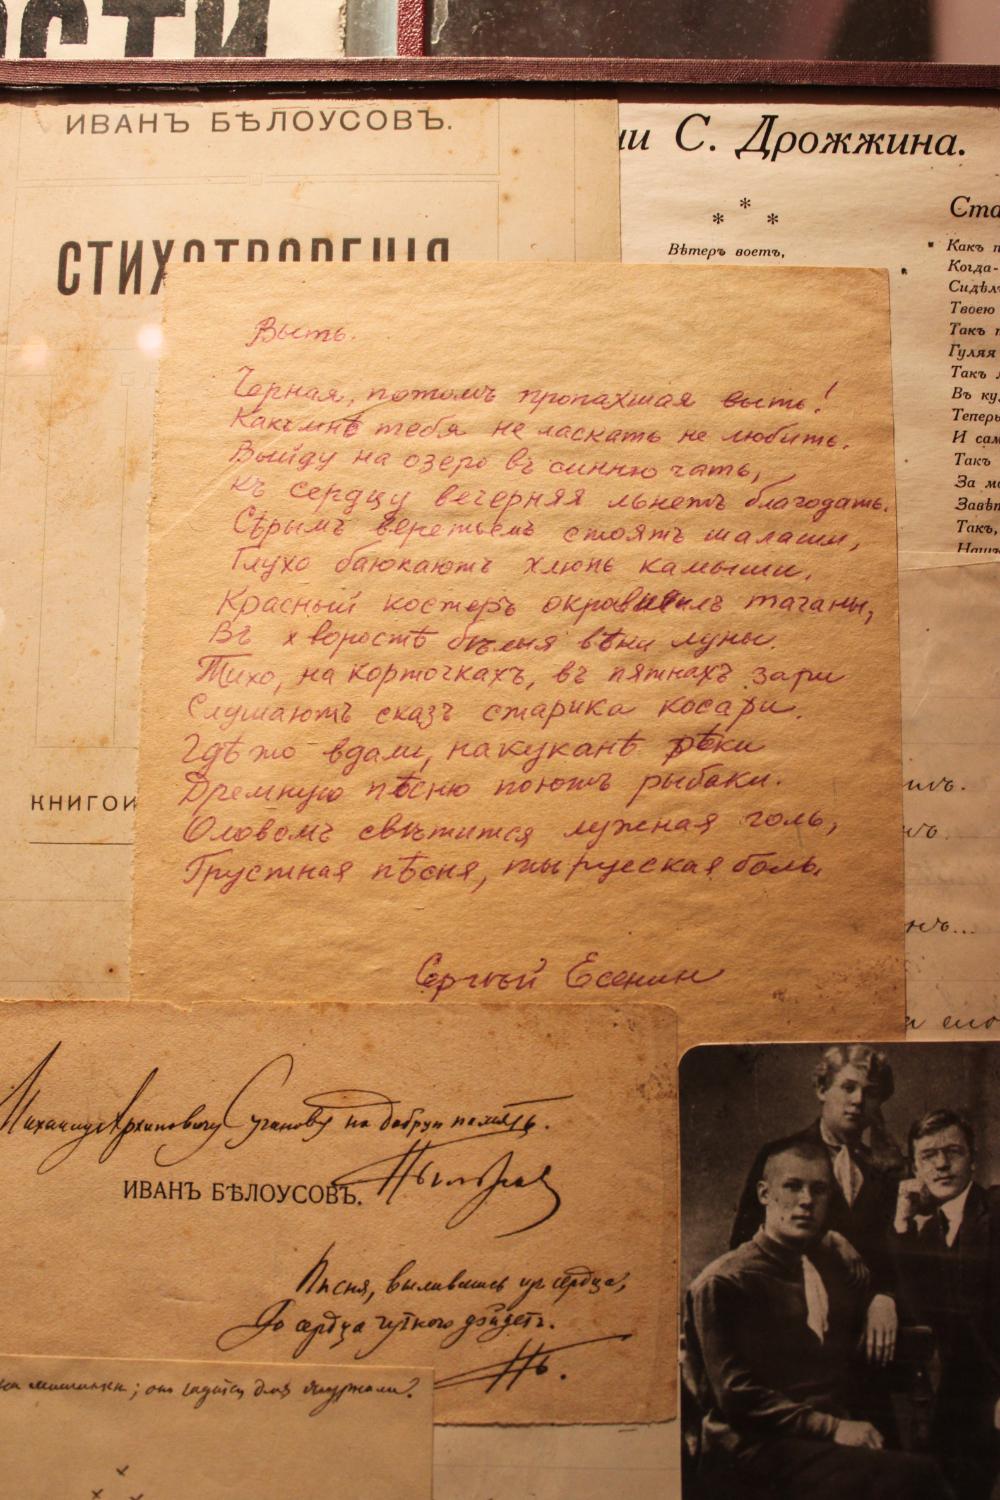 ОСТИ
ИВАНЪ БѢЛОУСОВЪ.
СТИХОТВОРЕНІЯ
КНИГОИ
ни С. Дрожжина.
* * *
Вѣтеръ воетъ,
Ста
Какъ п
Когда-
Сидѣл
Твоею
Такъ п
Гуляя
Такъ л
Въ ку
Теперь
И сам
Такъ
За мо
Завѣт
Такъ,
Нашъ
Выть.
Черная, потомъ пропахшая выть!
Какъ мнѣ тебя не ласкать не любить.
Выйду на озеро въ синюю гать,
Къ сердцу вечерняя льнетъ благодать.
Сѣрымъ веретьемъ стоятъ шалаши,
Глухо баюкаютъ хлюпь камыши.
Красный костеръ окровилъ таганы,
Въ хворостѣ бѣлыя вѣки луны.
Тихо, на корточкахъ, въ пятнахъ зари
Слушаютъ сказъ старика косари.
Гдѣ то вдали, на куканѣ рѣки
Дремную пѣсню поютъ рыбаки.
Оловомъ свѣтится лужная голь,
Грустная пѣсня, ты русская боль.
Сергѣй Есенин
Михаилу Архиповичу Сучанову на добрую память.
ИВАНЪ БѢЛОУСОВЪ.
Пѣсня, вылившись изъ сердца,
До сердца чуткого дойдетъ.
ИБ.